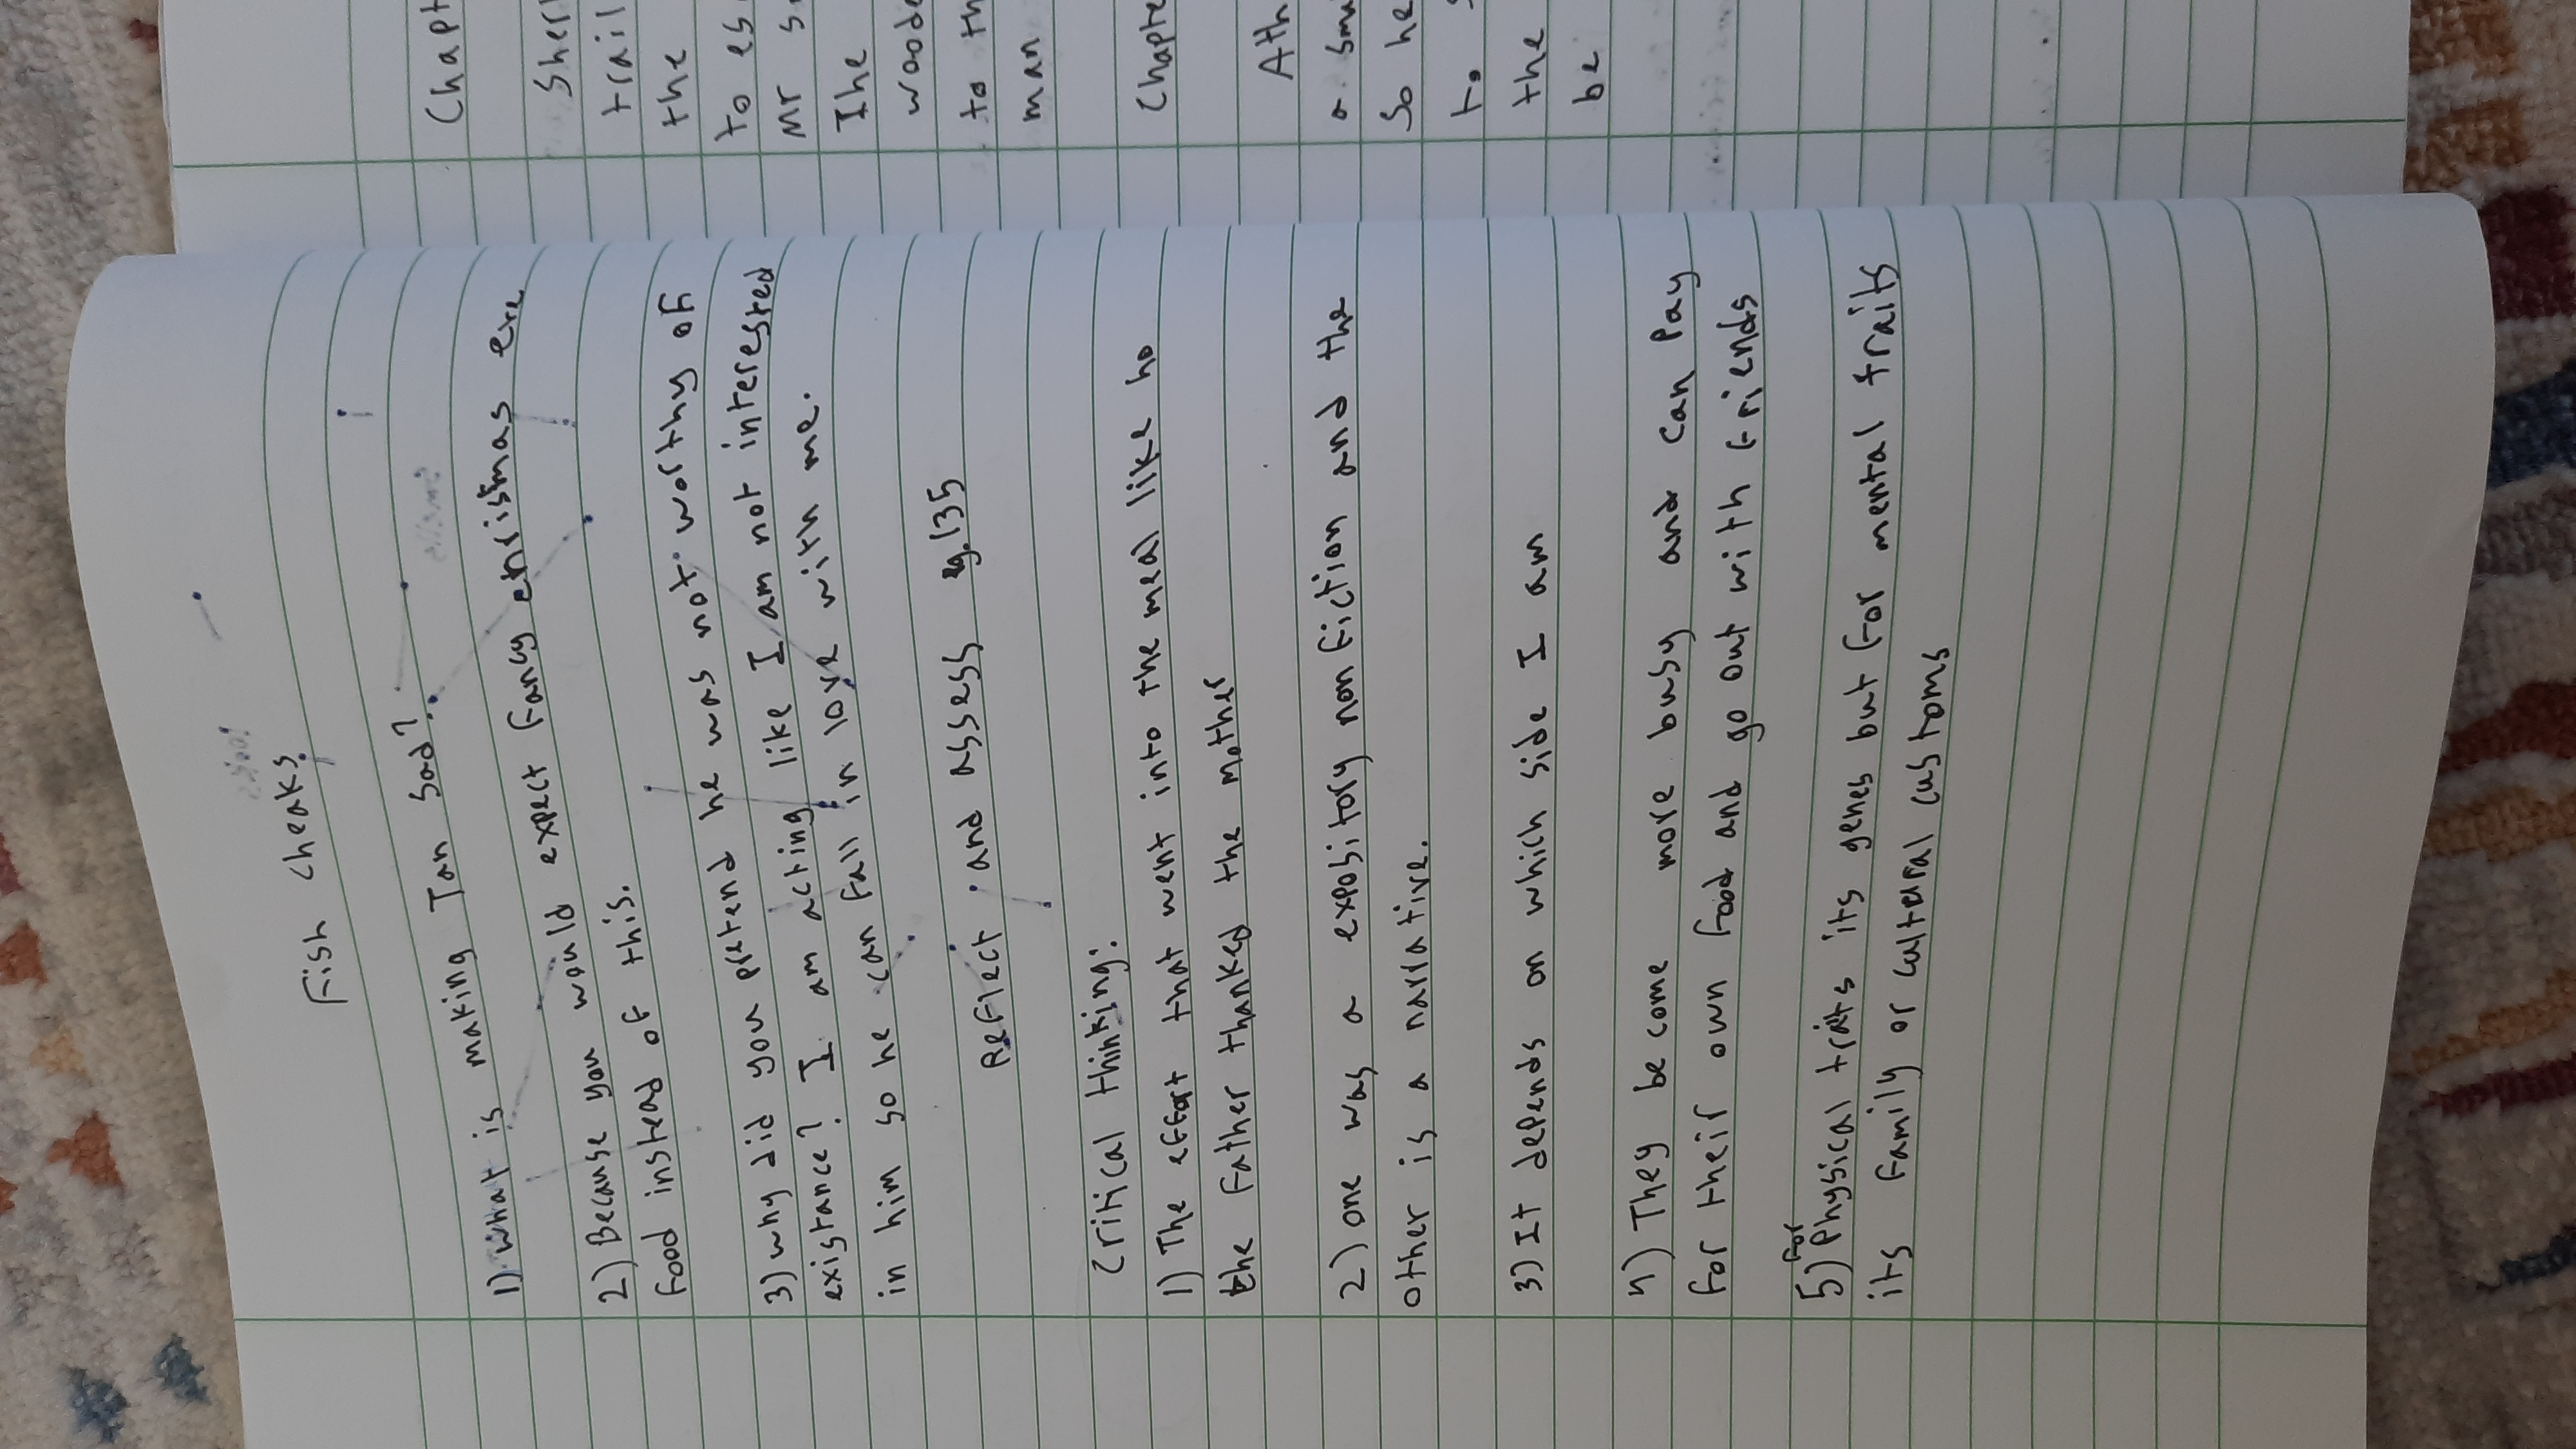 Fish cheaks
1) what is making Tan sad?
2) Because you would expect fancy christmas eve
food instead of this.
3) why did you pretend he was not worthy of
existance? I am acting like I am not interested
in him so he can fall in love with me.
Reflect and assess pg.135
Critical thinking:
1) The effort that went into the meal like ho
the father thanked the mother
2) one was a expository non fiction and the
other is a narrative.
3) It depends on which side I am
4) They become more busy and can pay
for their own food and go out with friends
for
5) Physical traits its genes but for mental traits
its family or cultural customs
Chapt
Sherl
trail
the
to es
Mr s
The
woode
to th
man
Chapte
Ath
a sma
So he
to
the
be